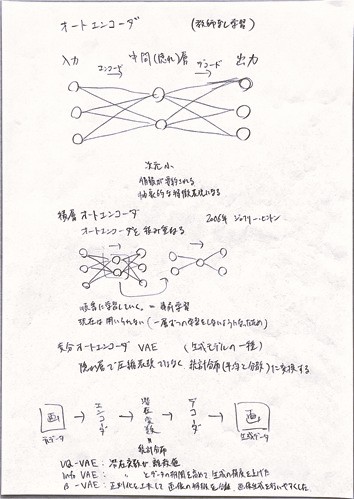 オートエンコーダ (教師なし学習)
入力 エンコード 中間(隠れ)層 デコード 出力
次元小
情報が要約される
効果的な特徴表現になる
積層オートエンコーダ 2006年 ジェフリー・ヒントン
オートエンコーダを積み重ねる
順番に学習していく。= 事前学習
現在は用いられない(一層ずつの学習をしないようになったため)
変分オートエンコーダ VAE (生成モデルの一種)
隠れ層で圧縮表現ではなく 統計分布(平均と分散)に変換する
画 → エンコーダ → 潜在変数 → デコーダ → 画
元データ = 生成データ
統計分布
VQ-VAE: 潜在変数が離散値
info VAE: 〃 とデータの相関を高めて生成の精度を上げた
β-VAE: 正則化を工夫して画像の特徴を分離 画像生成を行いやすくした。